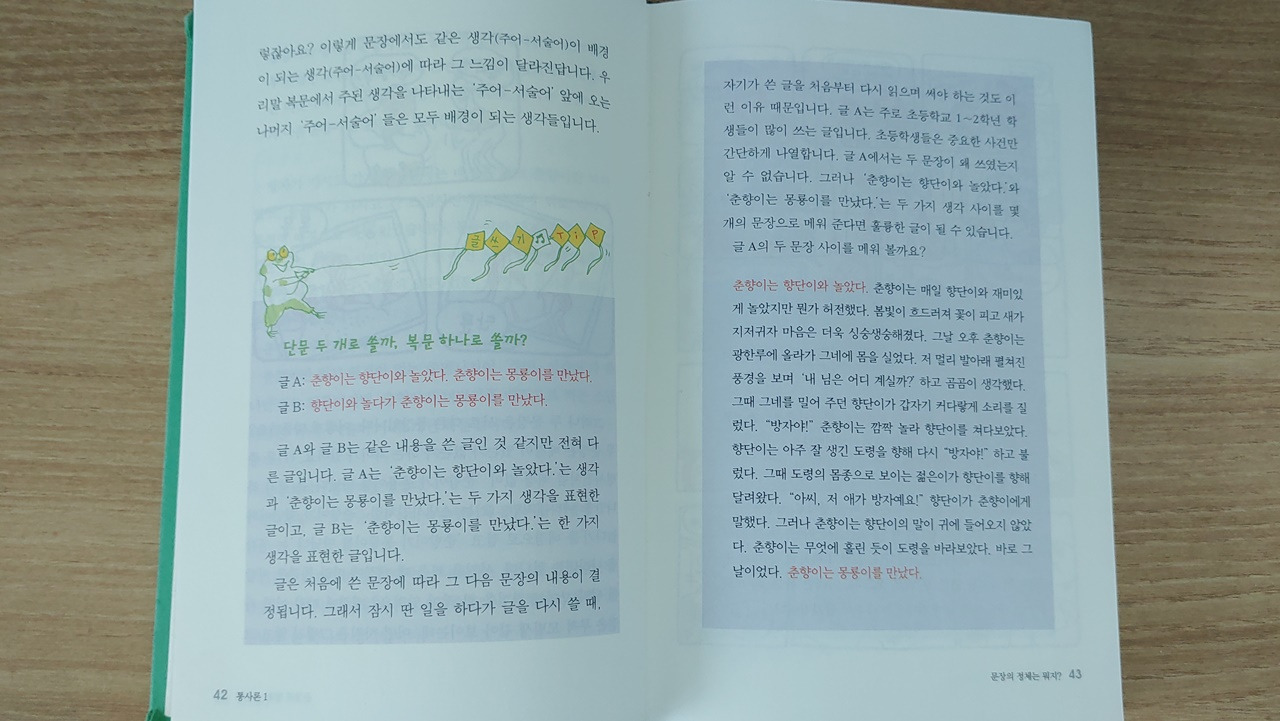 렇잖아요? 이렇게 문장에서도 같은 생각(주어-서술어)이 배경
이 되는 생각(주어-서술어)에 따라 그 느낌이 달라진답니다. 우
리말 복문에서 주된 생각을 나타내는 '주어-서술어' 앞에 오는
나머지 '주어-서술어' 들은 모두 배경이 되는 생각들입니다.
글쓰기 Tip
단문 두 개로 쓸까, 복문 하나로 쓸까?
글 A: 춘향이는 향단이와 놀았다. 춘향이는 몽룡이를 만났다.
글 B: 향단이와 놀다가 춘향이는 몽룡이를 만났다.
글 A와 글 B는 같은 내용을 쓴 글인 것 같지만 전혀 다
른 글입니다. 글 A는 '춘향이는 향단이와 놀았다.'는 생각
과 '춘향이는 몽룡이를 만났다.'는 두 가지 생각을 표현한
글이고, 글 B는 '춘향이는 몽룡이를 만났다.'는 한 가지
생각을 표현한 글입니다.
글은 처음에 쓴 문장에 따라 그 다음 문장의 내용이 결
정됩니다. 그래서 잠시 딴 일을 하다가 글을 다시 쓸 때,
42 통사론 1
자기가 쓴 글을 처음부터 다시 읽으며 써야 하는 것도 이
런 이유 때문입니다. 글 A는 주로 초등학교 1~2학년 학
생들이 많이 쓰는 글입니다. 초등학생들은 중요한 사건만
간단하게 나열합니다. 글 A에서는 두 문장이 왜 쓰였는지
알 수 없습니다. 그러나 '춘향이는 향단이와 놀았다.'와
'춘향이는 몽룡이를 만났다.'는 두 가지 생각 사이를 몇
개의 문장으로 메워 준다면 훌륭한 글이 될 수 있습니다.
글 A의 두 문장 사이를 메워 볼까요?
춘향이는 향단이와 놀았다. 춘향이는 매일 향단이와 재미있
게 놀았지만 뭔가 허전했다. 봄빛이 흐드러져 꽃이 피고 새가
지저귀자 마음은 더욱 싱숭생숭해졌다. 그날 오후 춘향이는
광한루에 올라가 그네에 몸을 실었다. 저 멀리 발아래 펼쳐진
풍경을 보며 '내 님은 어디 계실까?' 하고 곰곰이 생각했다.
그때 그네를 밀어 주던 향단이가 갑자기 커다랗게 소리를 질
렀다. "방자야!" 춘향이는 깜짝 놀라 향단이를 쳐다보았다.
향단이는 아주 잘 생긴 도령을 향해 다시 "방자야!" 하고 불
렀다. 그때 도령의 몸종으로 보이는 젊은이가 향단이를 향해
달려왔다. "아씨, 저 애가 방자예요!" 향단이가 춘향이에게
말했다. 그러나 춘향이는 향단이의 말이 귀에 들어오지 않았
다. 춘향이는 무엇에 홀린 듯이 도령을 바라보았다. 바로 그
날이었다. 춘향이는 몽룡이를 만났다.
문장의 정체는 뭐지? 43